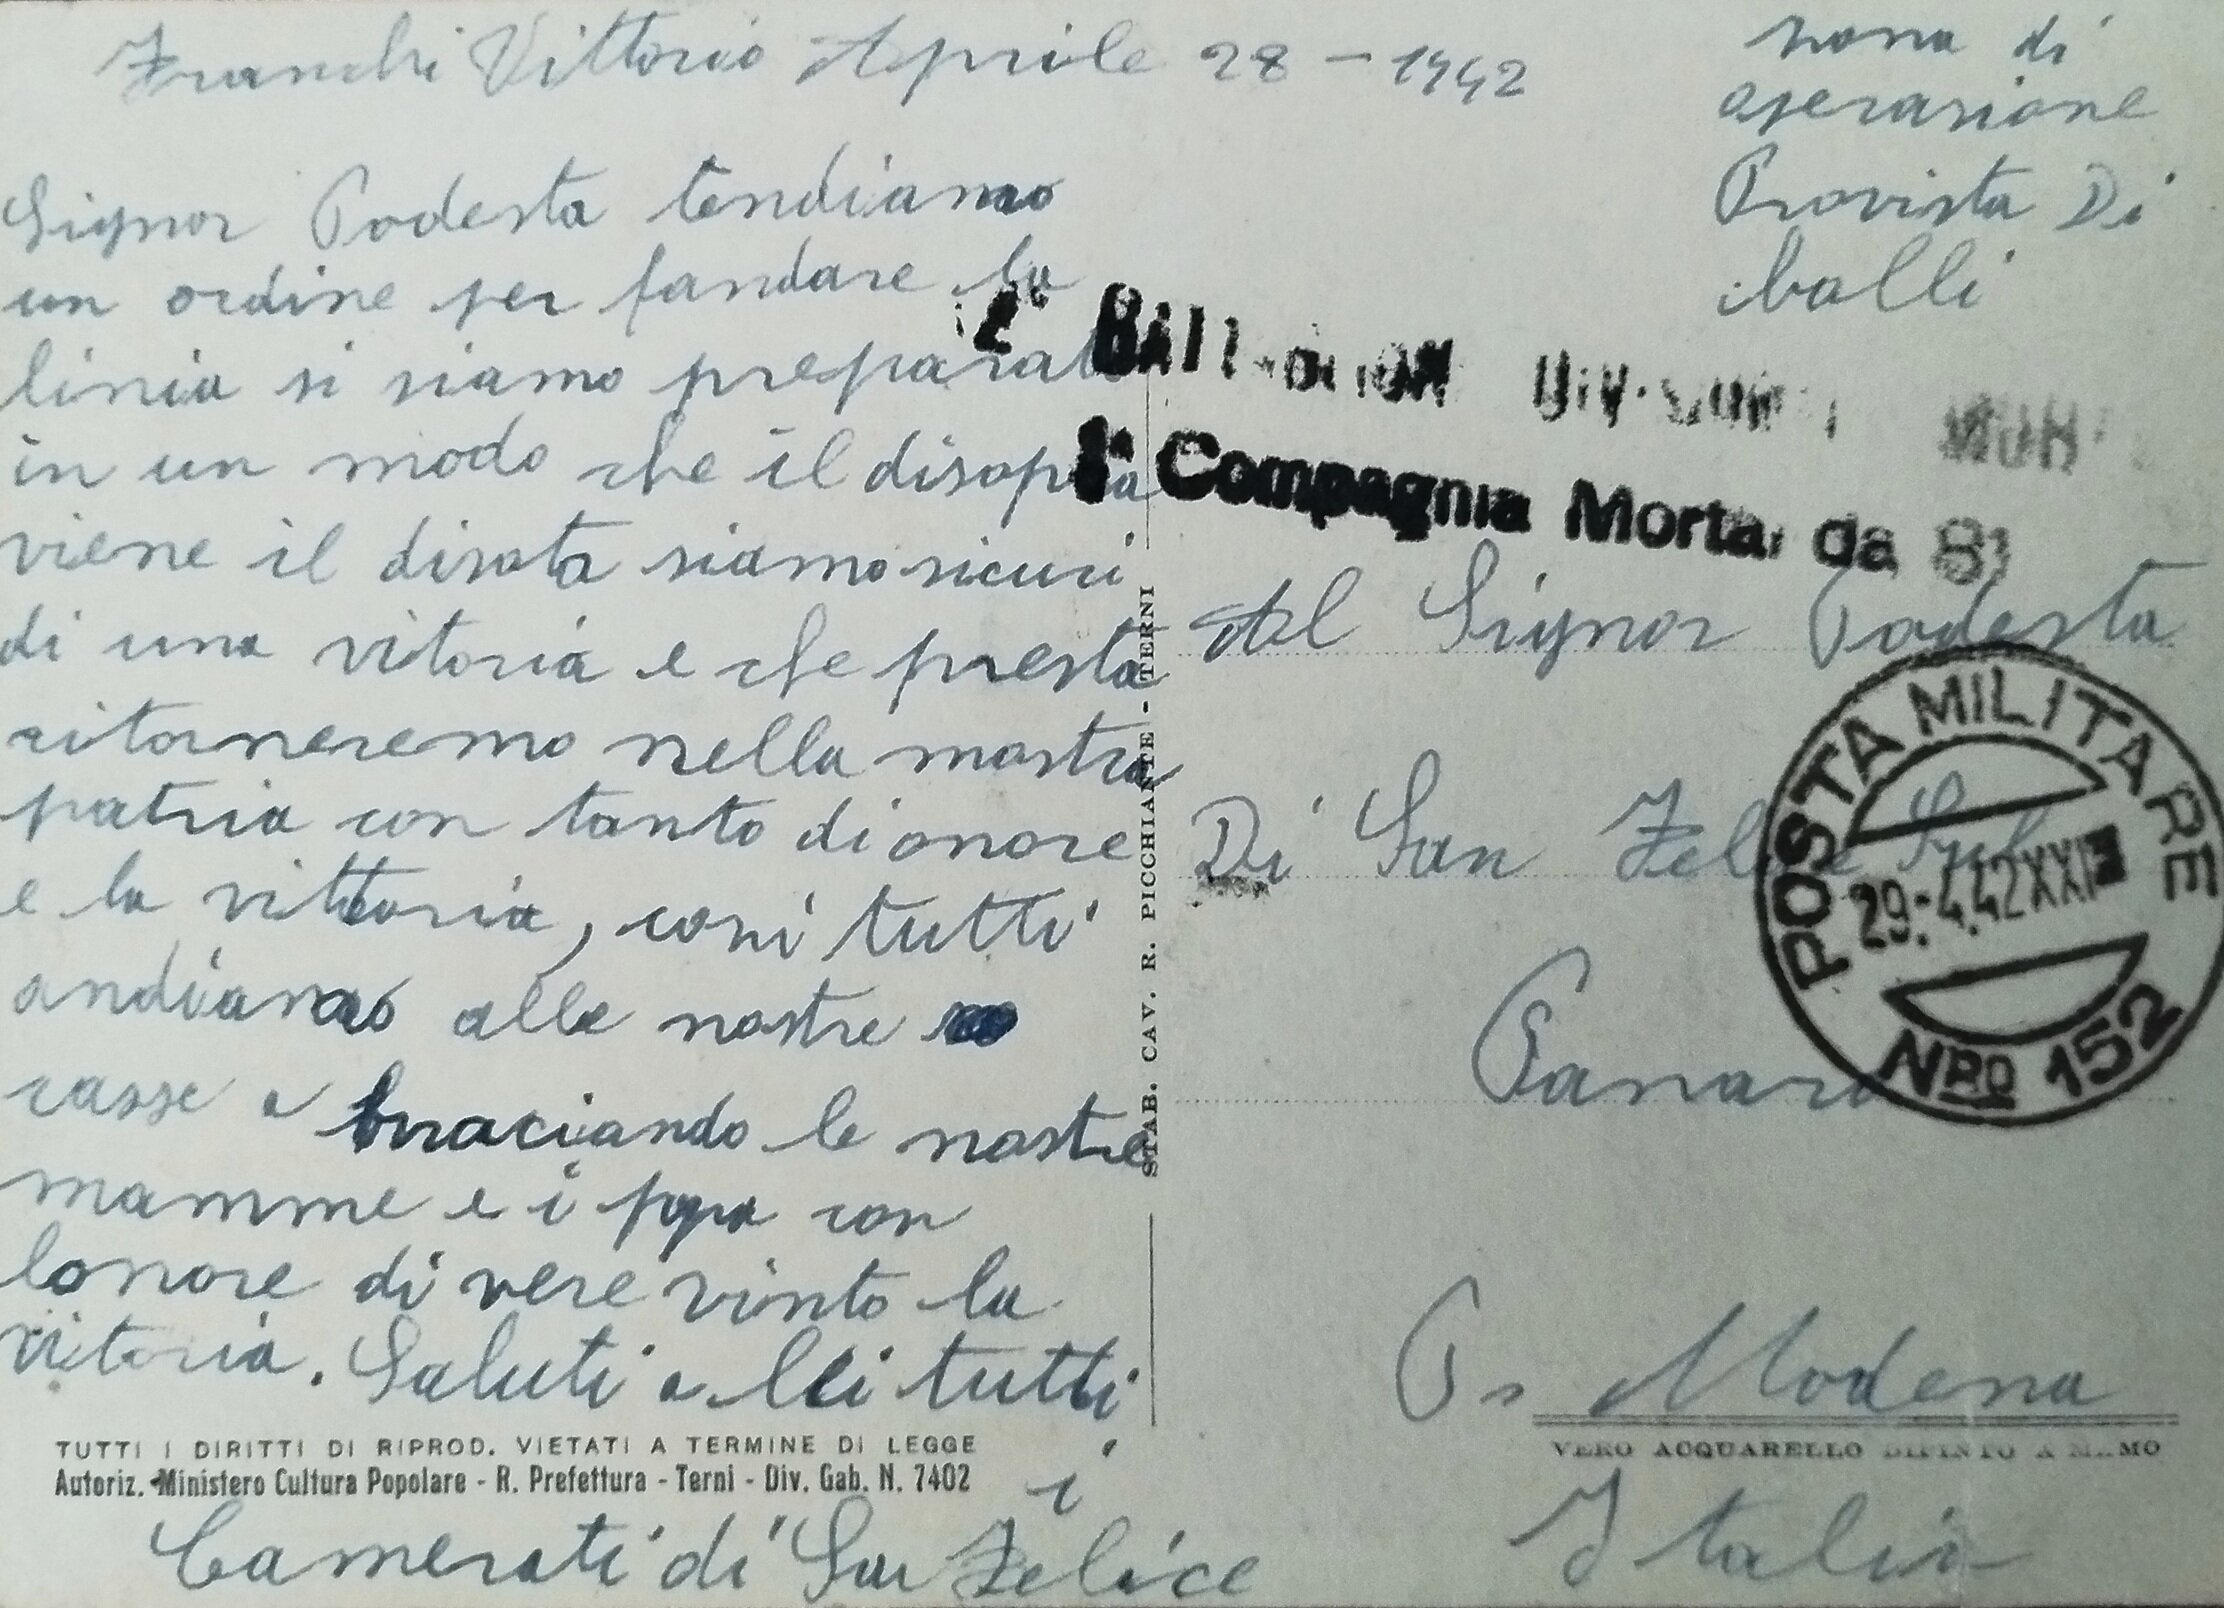 Franchi Vittorio Aprile 28 - 1942
Signor Podesta tendiamo
un ordine per fandare la
linia si siamo preparati
in un modo che il disopra
viene il disota siamo sicuri
di una vitoria e che presta
ritorneremo nella nostra
patria con tanto di onore
e la vittoria, cosi tutti
andiamo alle nostre
casse a braciando le nostre
mamme e i papa con
lonore di vere vinto la
vitoria. Saluti a llei tutti
i
Camerati di San Felice
TUTTI I DIRITTI DI RIPROD. VIETATI A TERMINE DI LEGGE
Autoriz. Ministero Cultura Popolare - R. Prefettura - Terni - Div. Gab. N. 7402
STAB. CAV. R. PICCHIANTE - TERNI
sona di
operasione
Provista Di
bolli
Compagnia Mortai da 81
Al Signor Podesta
Di San Felice Sul
Panaro
Pr Modena
VERO ACQUARELLO DIPINTO A MANO
Italia
POSTA MILITARE
29.-4.42XX
NRO 152